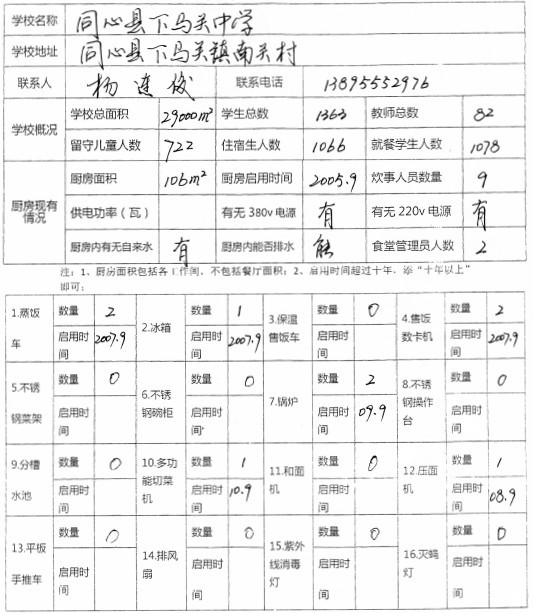 学校名称 同心县下马关中学
学校地址 同心县下马关镇南关村
联系人 杨连俊 联系电话 13895552976
学校概况 学校总面积 29000m² 学生总数 1363 教师总数 82
留守儿童人数 722 住宿生人数 1066 就餐学生人数 1078
厨房现有情况 厨房面积 106m² 厨房启用时间 2005.9 炊事人员数量 9
供电功率（瓦） 有无 380v 电源 有 有无 220v 电源 有
厨房内有无自来水 有 厨房内能否排水 能 食堂管理员人数 2
注：1、厨房面积包括各工作间，不包括餐厅面积；2、启用时间超过十年，添“十年以上”
即可；
1.蒸饭车 数量 2 2.冰箱 数量 1 3.保温售饭车 数量 0 4.售饭数卡机 数量 2
启用时间 2007.9 启用时间 2007.9 启用时间 启用时间 2007.9
5.不锈钢菜架 数量 0 6.不锈钢碗柜 数量 0 7.锅炉 数量 2 8.不锈钢操作台 数量 0
启用时间 启用时间 启用时间 09.9 启用时间
9.分槽水池 数量 0 10.多功能切菜机 数量 1 11.和面机 数量 0 12.压面机 数量 1
启用时间 启用时间 10.9 启用时间 启用时间 08.9
13.平板手推车 数量 0 14.排风扇 数量 0 15.紫外线消毒灯 数量 0 16.灭蝇灯 数量 0
启用时间 启用时间 启用时间 启用时间